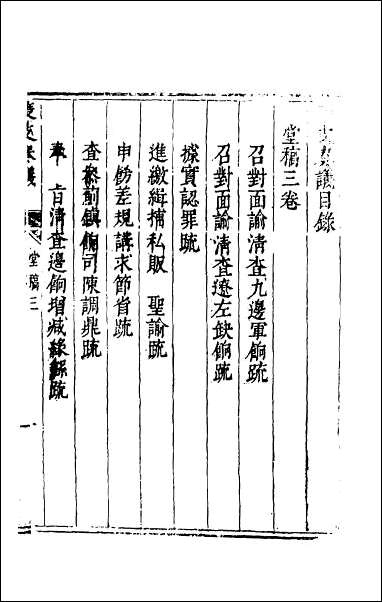 議目錄
堂稿三卷
召對面諭清查九邊軍餉疏
召對面諭清查遼左缺餉疏
據實認罪疏
進繳緝捕私販　聖諭疏
申飭差規講求節省疏
查參薊鎮餉司陳調鼎疏
奉　旨清查邊餉增減疏
堂稿三
一